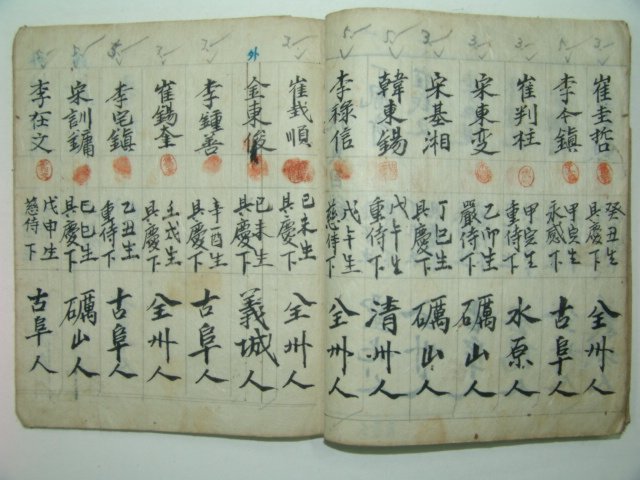 崔圭哲 癸丑生 具慶下 全州人
李今鎮 甲寅生 永感下 古阜人
崔判柱 甲寅生 重侍下 水原人
宋東変 乙卯生 嚴侍下 礪山人
宋基湘 丁巳生 具慶下 礪山人
韓東錫 戊午生 重侍下 清州人
李祿信 戊午生 慈侍下 全州人
崔 順 己未生 具慶下 全州人
外 金東俊 己未生 具慶下 義城人
李鍾善 辛酉生 具慶下 古阜人
崔錫奎 壬戌生 具慶下 全州人
李宅鎮 乙丑生 重侍下 古阜人
宋訓鏞 己巳生 具慶下 礪山人
李在文 戊申生 慈侍下 古阜人